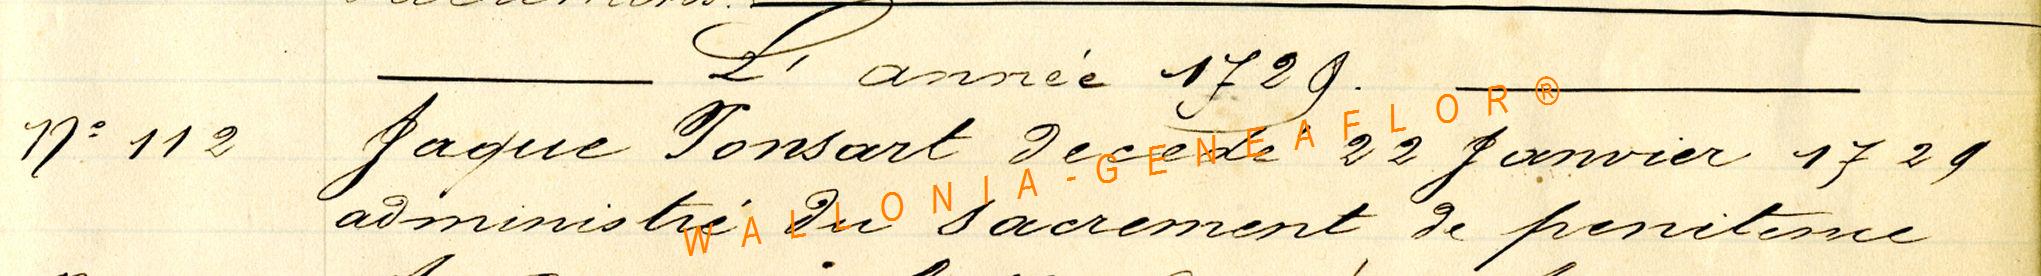 L' année 1729.
N° 112 Jaque Ponsart decedé 22 Janvier 1729
administré du sacrement de penitence
WALLONIA-GENEAFLOR®